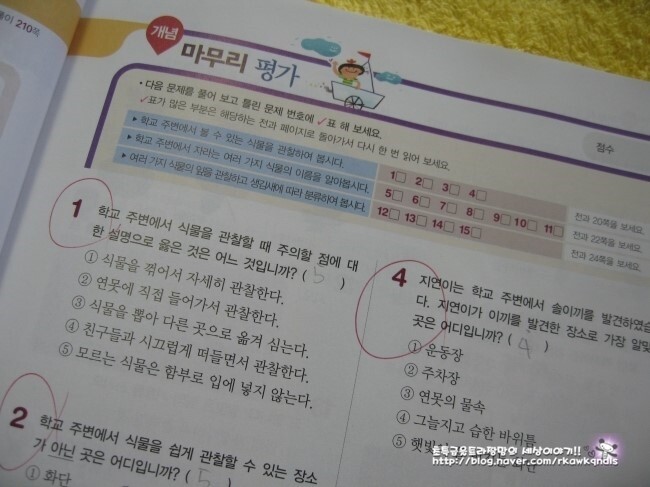 풀이 210쪽
개념
마무리 평가
• 다음 문제를 풀어 보고 틀린 문제 번호에 ✓표 해 보세요.
✓표가 많은 부분은 해당하는 전과 페이지로 돌아가서 다시 한 번 읽어 보세요.
점수
▶ 학교 주변에서 볼 수 있는 식물을 관찰하여 봅시다. 1□ 2□ 3□ 4□ 전과 20쪽을 보세요.
▶ 학교 주변에서 자라는 여러 가지 식물의 이름을 알아봅시다. 5□ 6□ 7□ 8□ 9□ 10□ 11□ 전과 22쪽을 보세요.
▶ 여러 가지 식물의 잎을 관찰하고 생김새에 따라 분류하여 봅시다. 12□ 13□ 14□ 15□ 전과 24쪽을 보세요.
1 학교 주변에서 식물을 관찰할 때 주의할 점에 대
한 설명으로 옳은 것은 어느 것입니까? ( 5 )
① 식물을 꺾어서 자세히 관찰한다.
② 연못에 직접 들어가서 관찰한다.
③ 식물을 뽑아 다른 곳으로 옮겨 심는다.
④ 친구들과 시끄럽게 떠들면서 관찰한다.
⑤ 모르는 식물은 함부로 입에 넣지 않는다.
2 학교 주변에서 식물을 쉽게 관찰할 수 있는 장소
가 아닌 곳은 어디입니까? ( 5 )
① 화단
4 지연이는 학교 주변에서 솔이끼를 발견하였습
다. 지연이가 이끼를 발견한 장소로 가장 알맞
곳은 어디입니까? ( 4 )
① 운동장
② 주차장
③ 연못의 물속
④ 그늘지고 습한 바위틈
⑤ 햇빛
http://blog.naver.com/rkawkqndls